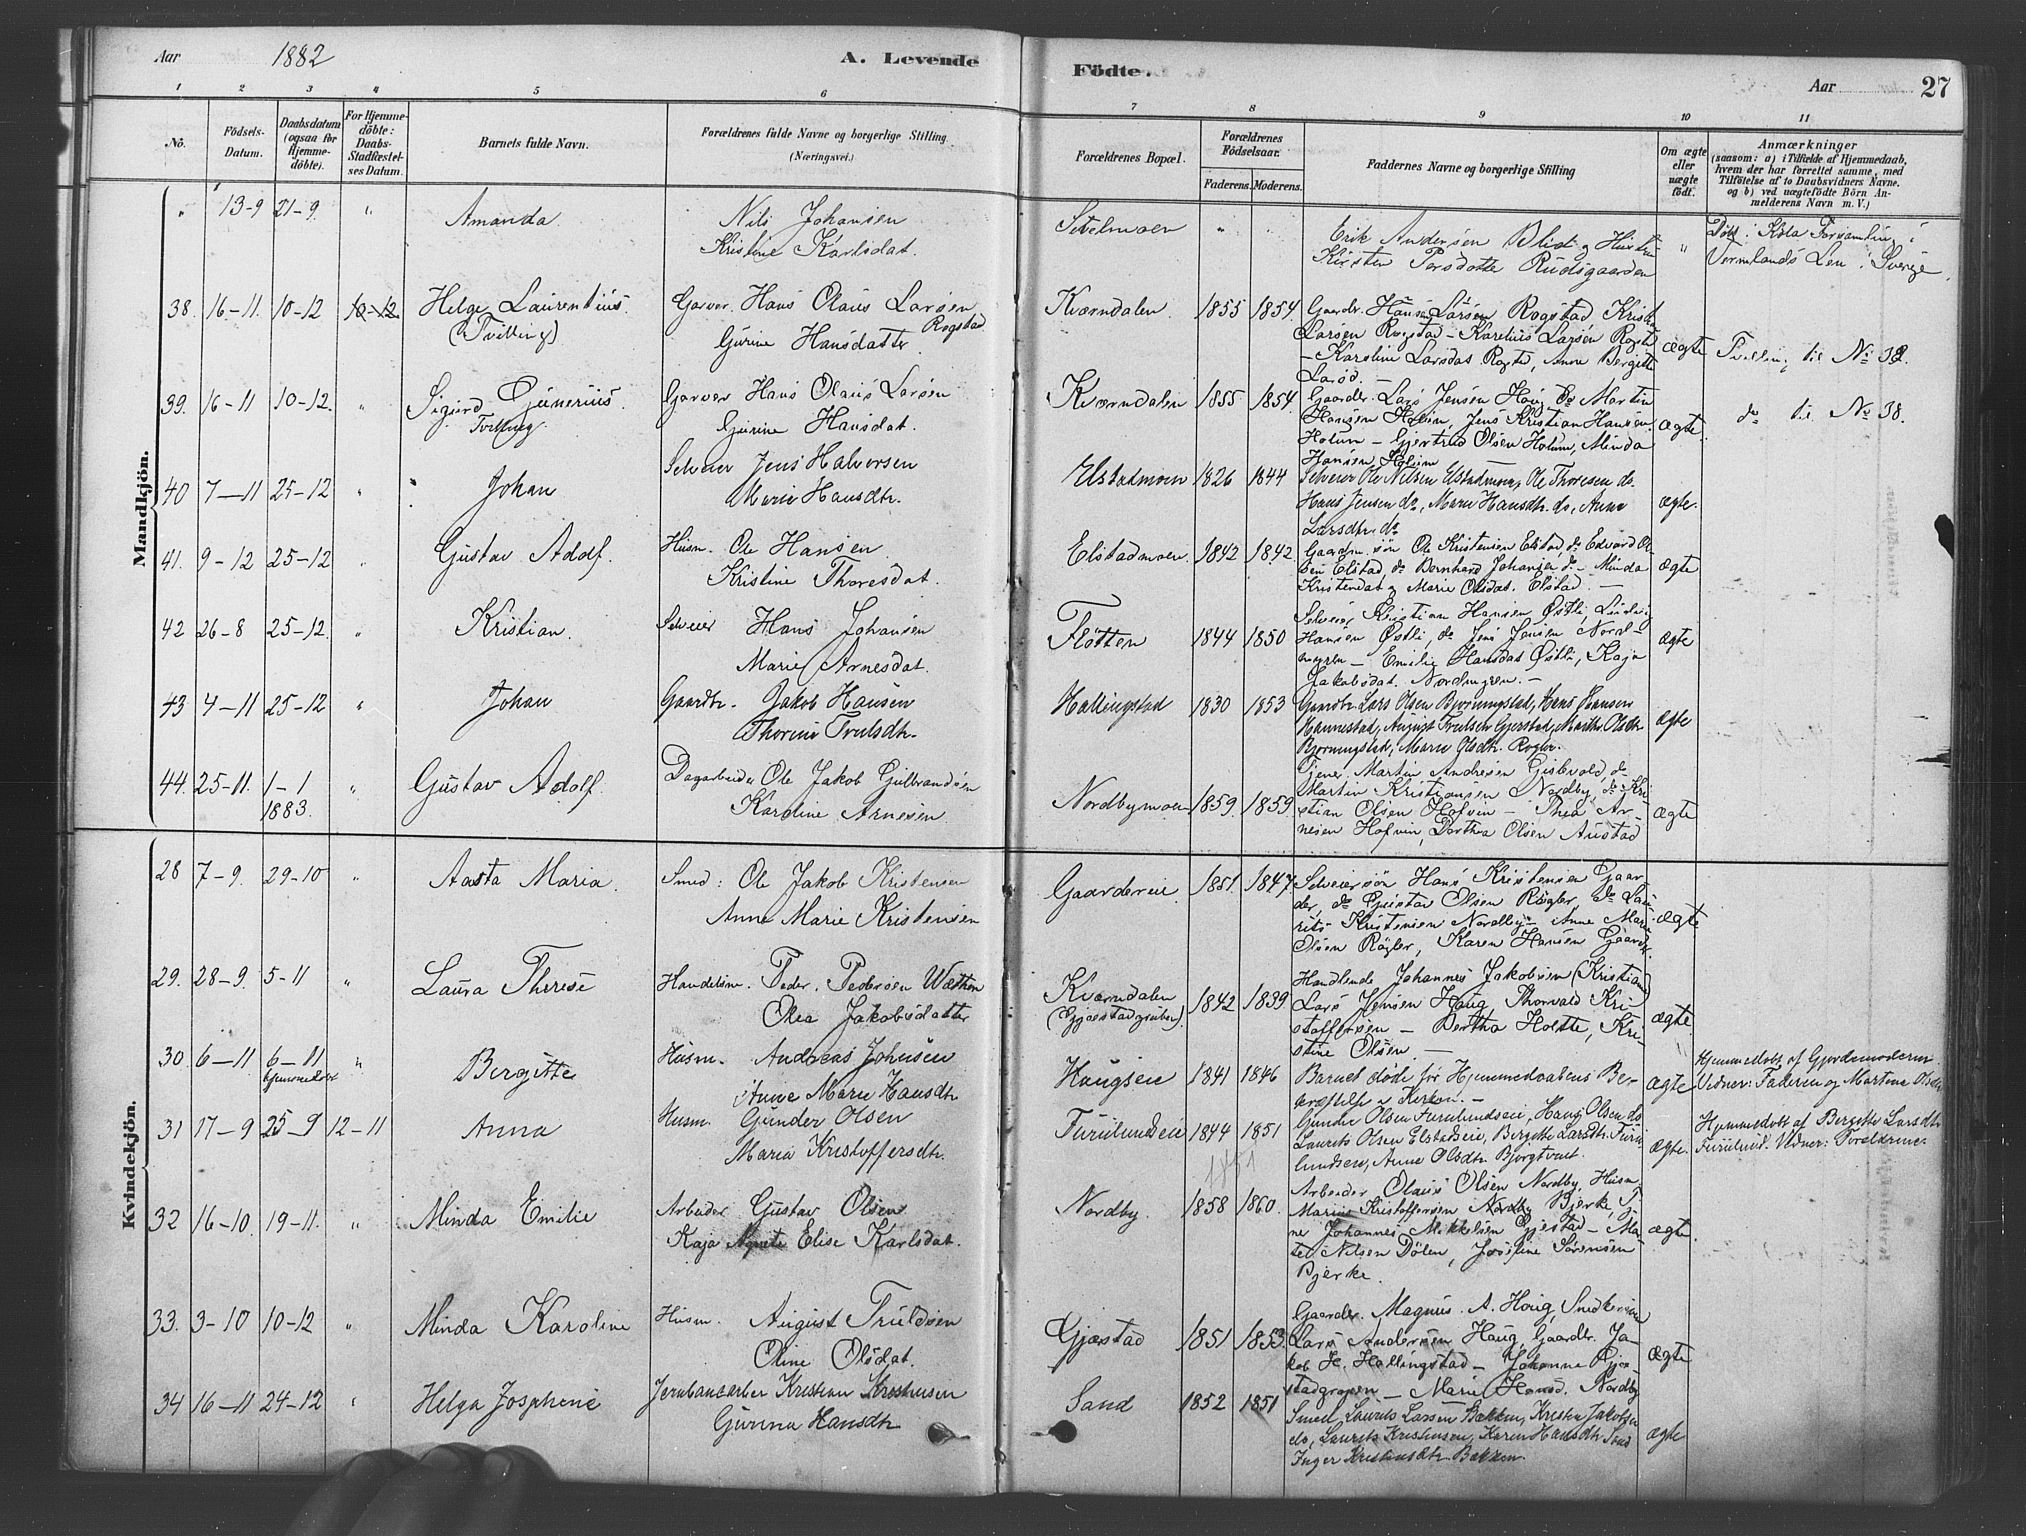 Aar 1882 A. Levende Födte. Aar 27
1 2 3 4 5 6 7 8 9 10 11
No. Födsels-Datum. Daabsdatum (ogsaa for Hjemmedöbte). For Hjemmedöbte: Daabs-Stadfæstelses Datum. Barnets fulde Navn. Forældrenes fulde Navne og borgerlige Stilling. (Næringsvei.) Forældrenes Bopæl. Forældrenes Födselsaar. Faderens. Moderens. Faddernes Navne og borgerlige Stilling Om ægte eller uægte födt. Anmærkninger (saasom: a) i Tilfælde af Hjemmedaab, hvem der har forrettet samme, med Tilföielse af to Daabsvidners Navne. og b) ved uægtefödte Börn Anmelderens Navn m. V.)
Mandkjön.
" 13-9 21-9 " Amanda Nils Johansen
Kristine Karlsdat. " " Erik Andersen
Kirsten Persdotte Rudsgaarden " Døbt i Köla Forsamling i
Vermlands Len i Sverige.
38. 16-11 10-12 10-12 Helge Laurentius
(Tvilling) Garver. Hans Olaus Larsen
Rogstad
Gurine Hansdatter Kværndalen. 1855 1854. Gaardbr. Hans Larsen Rogstad
Larsen Rogstad - Karelius Larsen
- Karoline Larsdat. Anne Bergitte
ægte Tvilling til No 39.
39. 16-11 10-12. " Sigurd Gunerius.
Tvilling Garver Hans Olaus Larsen
Gurine Hansdat. Kværndalen 1855 1854. Gaardbr. Lars Jensen Haug do Martin
Hansen Holum, Jens Kristian Hansen
Holum - Gjertrud Olsen Holum, Minda
Hansen Holum ægte. do til No 38.
40 7-11 25-12 " Johan Selveier Jens Halvorsen
Marie Hansdtr. Elstadmoen 1826 1844 Selveier Ole Nilsen Elstadmoen, Ole Thoresen do.
Hans Jensen do, Marie Hansdtr. do, Anne
Larsdtr. do ægte.
41. 9-12 25-12 " Gustav Adolf. Husm. Ole Hansen
Kristine Thoresdat. Elstadmoen. 1842 1842 Gaardm. søn Ole Kristensen Elstad, do Edvard Ol-
sen Elstad do Bernhard Johansen do - Minda
Kristensdat og Marie Olsdat. Elstad. - ægte
42 26-8 25-12. " Kristian. Selveier Hans Johansen
Marie Arnesdat. Fløtten 1844 1850 Selveier, Kristian Hansen Østli, Ludvig
Hansen Østli, do Jens Jensen Nord-
myren - Emilie Hansdat Østli, Kaja
Jakobsdat. Nordmyren. - ægte
43 4-11 25-12 " Johan Gaardbr. Jakob Hansen
Thorine Trulsdtr. Hallingstad 1830 1853 Gaardbr. Lars Olsen Bjørningstad, Hans Hansen
Hannestad, August Trulsen Gjestad, Marthe Olsdtr
Bjørningstad, Marie Olsdtr. Rogler. ægte
44. 25-11. 1-1
1883. " Gustav Adolf. Dagarbeider Ole Jakob Gulbrandsen
Karoline Arnesen Nordbymoen 1859. 1859. Tjener. Martin Andresen do
Martin Kristiansen Nordby, do Kri-
stian Olsen Hofvin - Thea Ar-
nesen Hofvin, Dorthea Olsen Austad ægte
Kvindekjön.
28 7-9. 29-10 " Aasta Maria. Smed: Ole Jakob Kristensen
Anne Marie Kristensen Gaardereie 1851. 1847. Selveiersøn Hans Kristensen Gaar-
der, do Gustav Olsen Røgler, do Lau-
rits Kristensen Nordby - Anne Marie
Olsen Røgler, Karen Hansen Gaarder. ægte
29. 28-9. 5-11 " Laura Therese Handelsm. Peder Pedersen Wæthen
Olea Jakobsdatter Kværndalen
(Gjæstadgruben). 1842 1839 Handlende Johannes Jakobsen (Kristian)
Lars Jensen Haug Thorvald Kri-
stoffersen - Berthea Holtte, Kri-
stine Olsen - ægte
30. 6-11 6-11
hjemmedøbt " Bergitte Husm. Andreas Johnsen
Anne Marie Hansdtr Haugseie 1841 1846 Barnet døde før Hjemmedaabens Be-
kræftelse i Kirken. - ægte Hjemmedøbt af Gjordemoderen
Vidner: Faderen og Martene Olsdtr
31 17-9 25-9 12-11 Anna Husm. Gunder Olsen
Maria Kristoffersdtr. Furulundseie 1844 1851
1851 Gunder Olsen Furulundseie, Hans Olsen do
Laurets Olsen Elstadeie, Bergitte Larsdtr. Furu-
lundseie, Anne Olsdtr Bjørgtvet. ægte. Hjemmedøbt af Bergitte Larsdtr
Furulund. Vidner: Forældrene.
32 16-10. 19-11. " Minda Emilie Arbeider Gustav Olsen
Kaja Agnete Elise Karlsdat. Nordby. 1858 1860. Arbeider Olaus Olsen Nordby, Husm.
Marius Kristoffersen Nordby Bjerke, Tje-
ner Johannes Mikkelsen Gjestad - Mar-
te Nilsen Dølen, Josefine Sørensen
Bjerke. ægte.
33. 3-10 10-12 " Minda Karoline Husm. August Truldsen
Oline Olsdat. Gjæstad 1851 1853. Gaardbr. Magnus A. Haug, Snedkersven
Lars Andersen Haug, Gaardbr. Ja-
kob H. Hallingstad - Johanne
- Marie Hansd. Nordby ægte
34 16-11 24-12 " Helga Josephine Jernbanearber Kristian Kristiansen
Gurina Hansdtr Sand 1852 1851 Smed Laurits Larsen Bakken, Kristen Jakobsen
do, Laurits Kristiansen, Karen Hansdtr Sand
Inger Kristiansdtr. Bakken. ægte